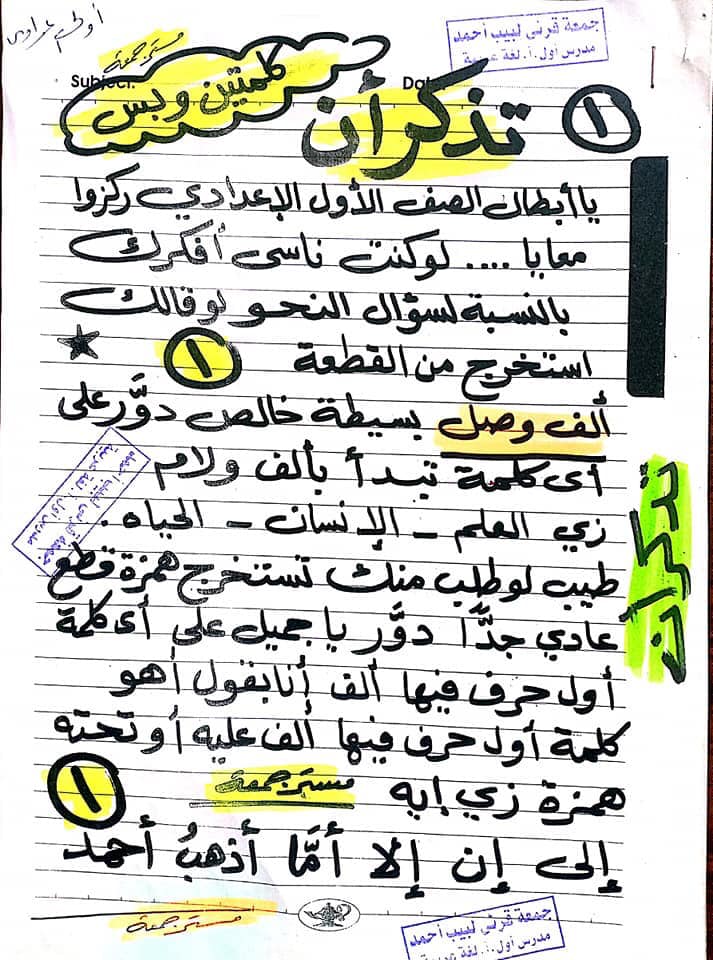 أولى إعدادى
مستر جمعة
جمعة قرني لبيب أحمد
مدرس أول .أ. لغة عربية
Subject:
Date:
كلمتين وبس
١
تذكر أن
يا أبطال الصف الأول الإعدادي ركزوا
معايا .... لو كنت ناسى أفكرك
بالنسبة لسؤال النحو لو قالك
استخرج من القطعة ١
ألف وصل بسيطة خالص دوَّر على
أى كلمة تبدأ بألف ولام
زي العلم – الإنسان – الحياه .
طيب لو طلب منك تستخرج همزة قطع
عادي جدًّا دوَّر يا جميل على أى كلمة
أول حرف فيها ألف أنا بقول أهو
كلمة أول حرف فيها ألف عليه أو تحته
همزة زي إيه مستر جمعة ١
إلى إن إلا أمَّا أذهبُ أحمد
تذكر أن
جمعة قرني لبيب أحمد
مدرس أول .أ. لغة عربية
مستر جمعة
جمعة قرني لبيب أحمد
مدرس أول .أ. لغة عربية